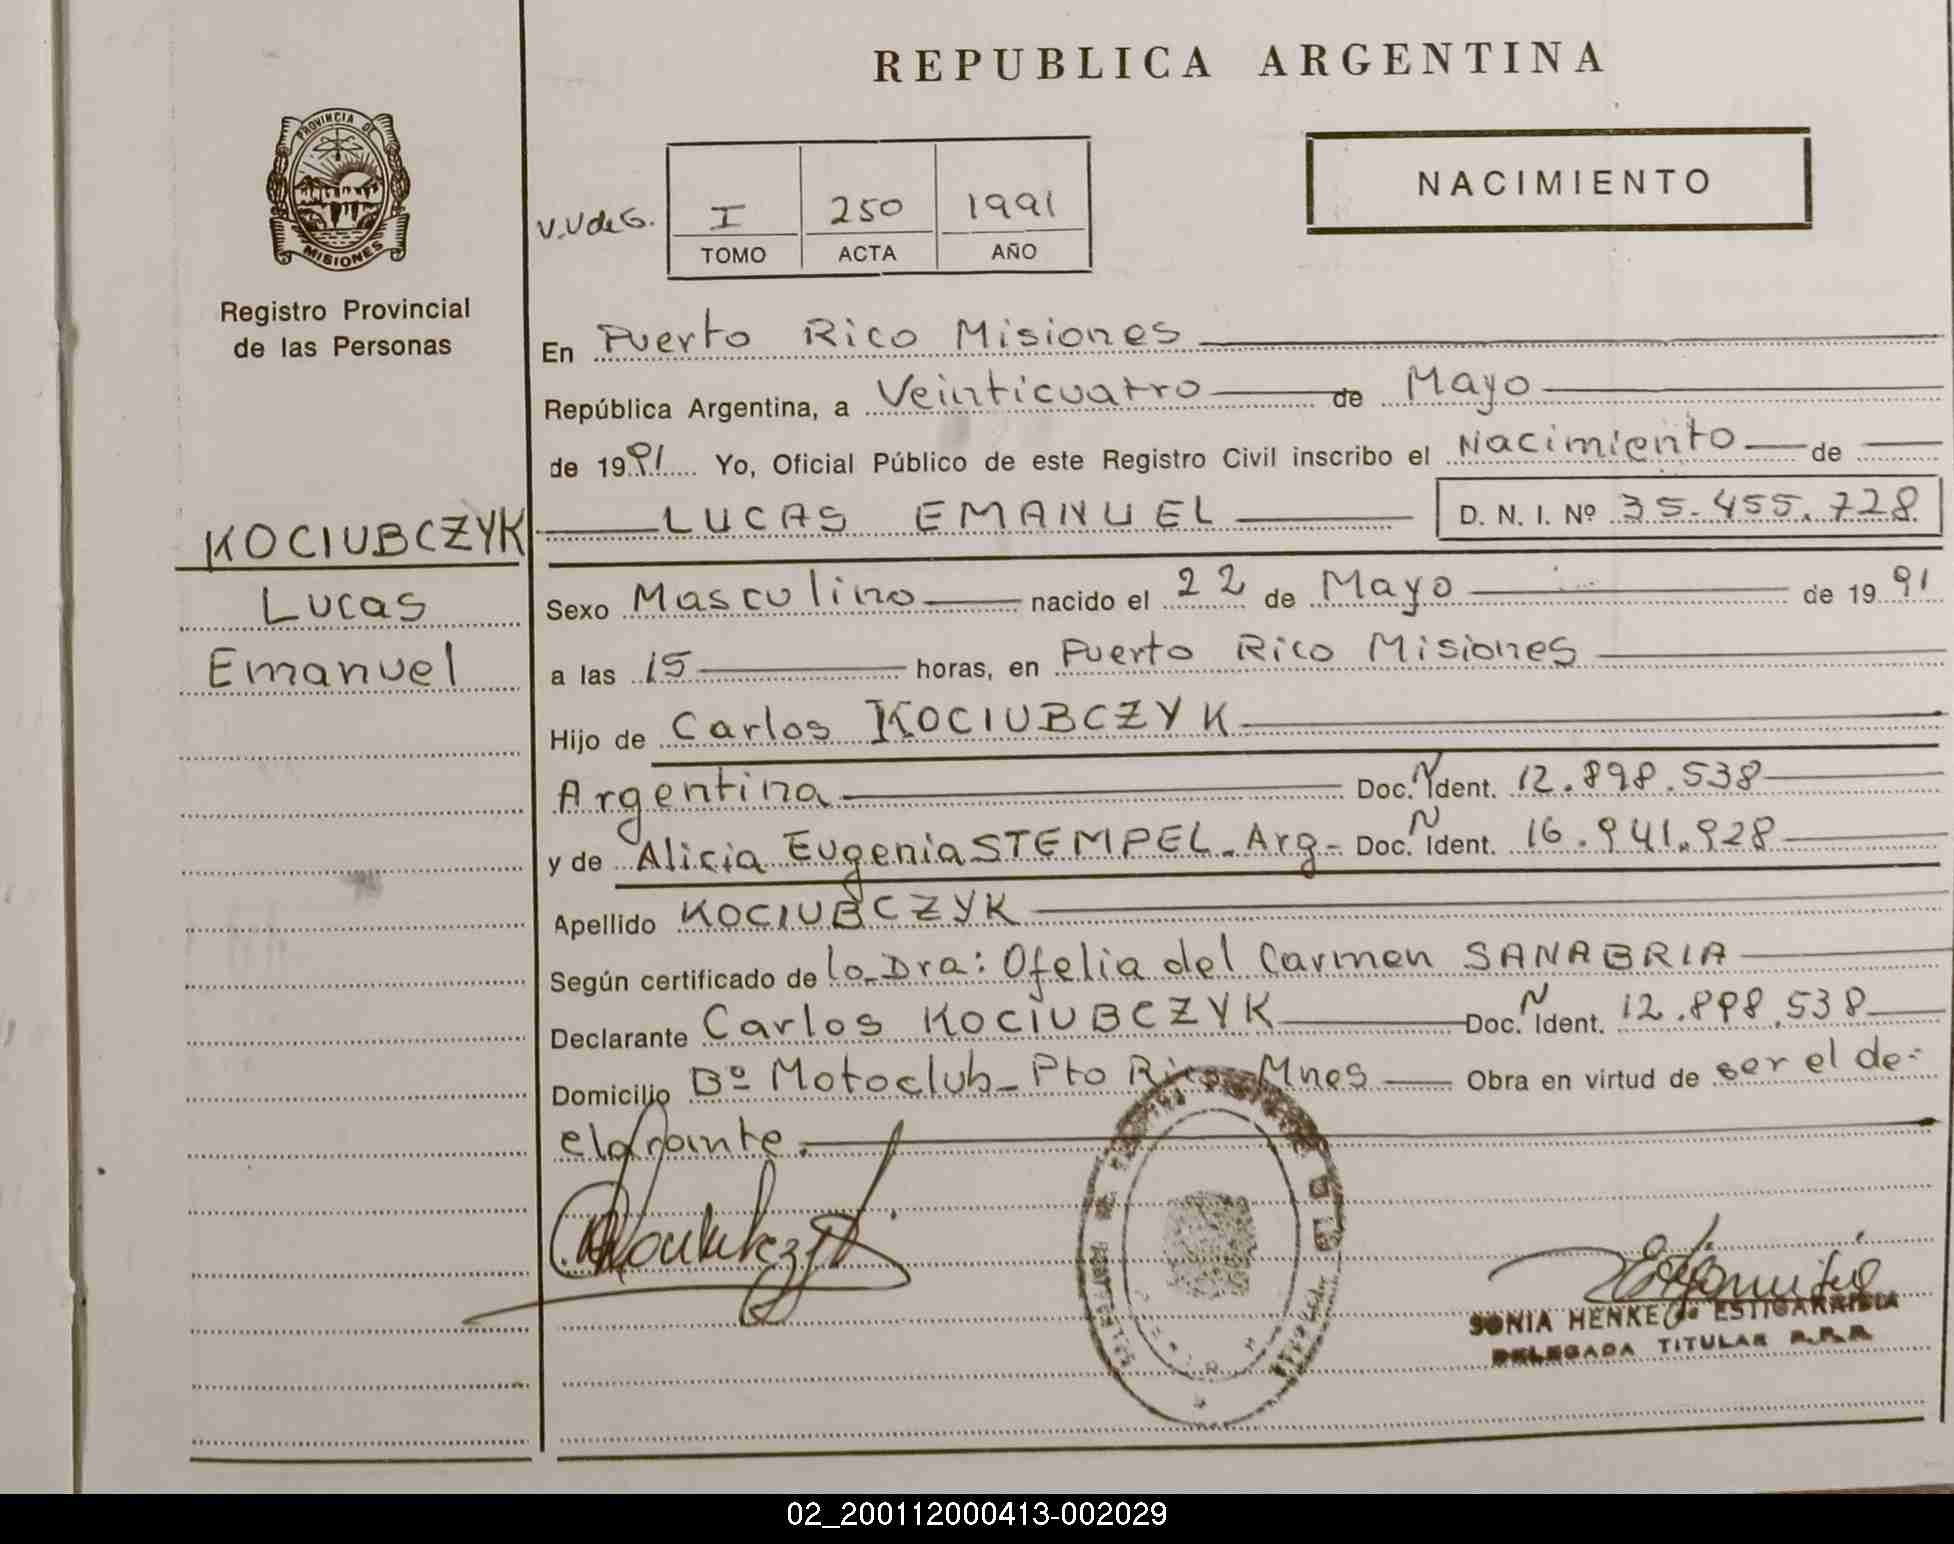 REPUBLICA ARGENTINA
PROVINCIA DE
MISIONES
NACIMIENTO
V.V de G.
I 250 1991
TOMO ACTA AÑO
Registro Provincial
de las Personas
En Puerto Rico Misiones
República Argentina, a Veinticuatro de Mayo
de 1991 Yo, Oficial Público de este Registro Civil inscribo el Nacimiento de
KOCIUBCZYK
Lucas
Emanuel
LUCAS EMANUEL D. N. I. Nº 35.455.728
Sexo Masculino nacido el 22 de Mayo de 1991
a las 15 horas, en Puerto Rico Misiones
Hijo de Carlos KOCIUBCZYK
Argentina Doc. N Ident. 12.898.538
y de Alicia Eugenia STEMPEL_ Arg- Doc. N Ident. 16.941.928
Apellido KOCIUBCZYK
Según certificado de la Dra: Ofelia del Carmen SANABRIA
Declarante Carlos KOCIUBCZYK Doc. N Ident. 12.898.538
Domicilio Bº Motoclub_ Pto Rico Mnes Obra en virtud de ser el de-
clarante.
SONIA HENKE de ESTIGARRIBIA
DELEGADA TITULAR R.P.P.
02_200112000413-002029